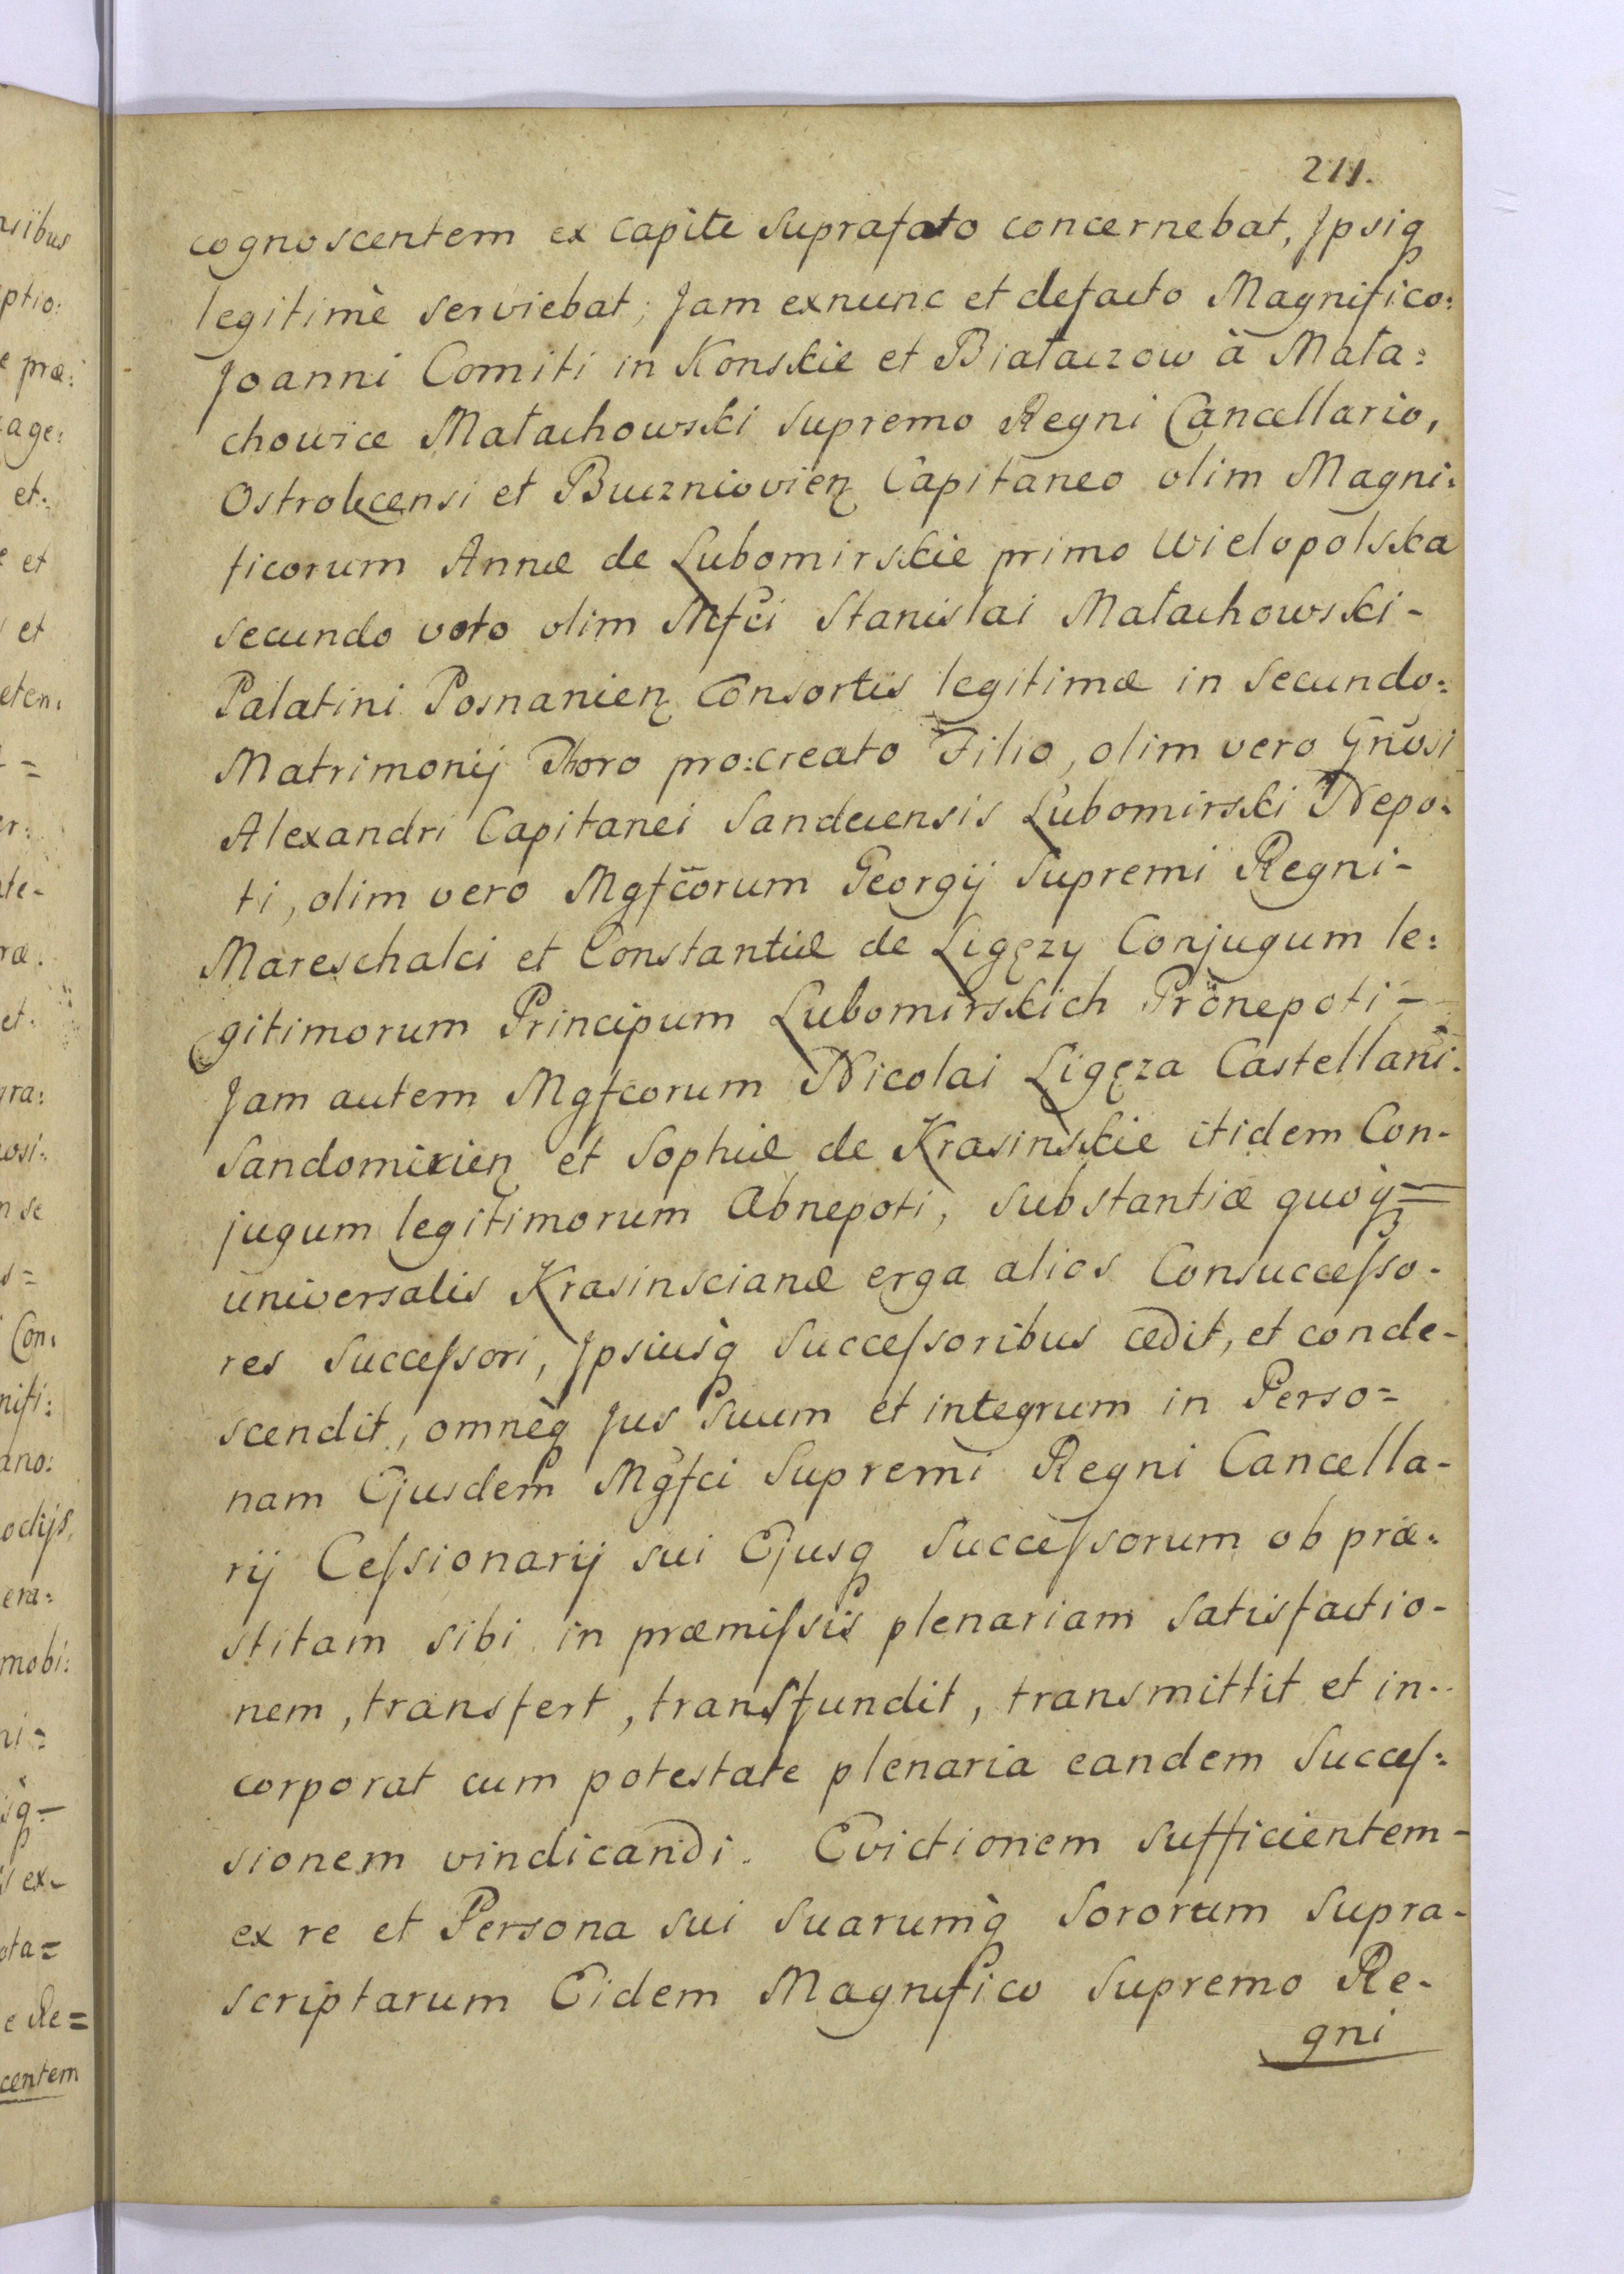 211.
cognoscentem ex capite suprafato concernebat, Ipsiq
legitimè serviebat; Jam exnunc et defacto Magnifico:
Joanni Comiti in Konskie et Białaczow à Mała:
chowice Małachowski Supremo Regni Cancellario,
Ostrolecensi et Buczniovien Capitaneo olim Magni:
ficorum Annæ de Lubomirskie primo Wielopolska
secundo voto olim Mfci Stanislai Małachowski -
Palatini Posnanien Consortis legitimæ in Secundo:
Matrimonij Thoro pro:creato Filio, olim vero Gnosi
Alexandri Capitanei Sandecensis Lubomirski Nepo:
ti, olim vero Mgfcorum Georgij Supremi Regni -
Mareschalci et Constantiæ de Ligęzy Conjugum le:
gitimorum Principum Lubomirskich Pronepoti -
Jam autem Mgfcorum Nicolai Ligęza Castellani.
Sandomirien et Sophiæ de Krasinskie itidem Con-
jugum legitimorum Abnepoti, substantiæ quoq =
universalis Krasinscianæ erga alios Consucceſso-
res Succeſsori, Ipsiusq̀ Succeſsoribus cedit, et conde-
scendit, omneq̀ Jus Suum et integrum in Perso=
nam Ejusdem Mgfci Supremi Regni Cancella-
rij Ceſsionarij sui Ejusq Succeſsorum ob præ:
stitam sibi in præmiſsis plenariam satisfactio-
nem, transfert, transfundit, transmittit et in-
corporat cum potestate plenaria eandem Succeſ:
sionem vindicandi. Evictionem sufficientem -
ex re et Persona sui Suarumq̀ Sororum Supra-
scriptarum Eidem Magnifico Supremo Re-
gni